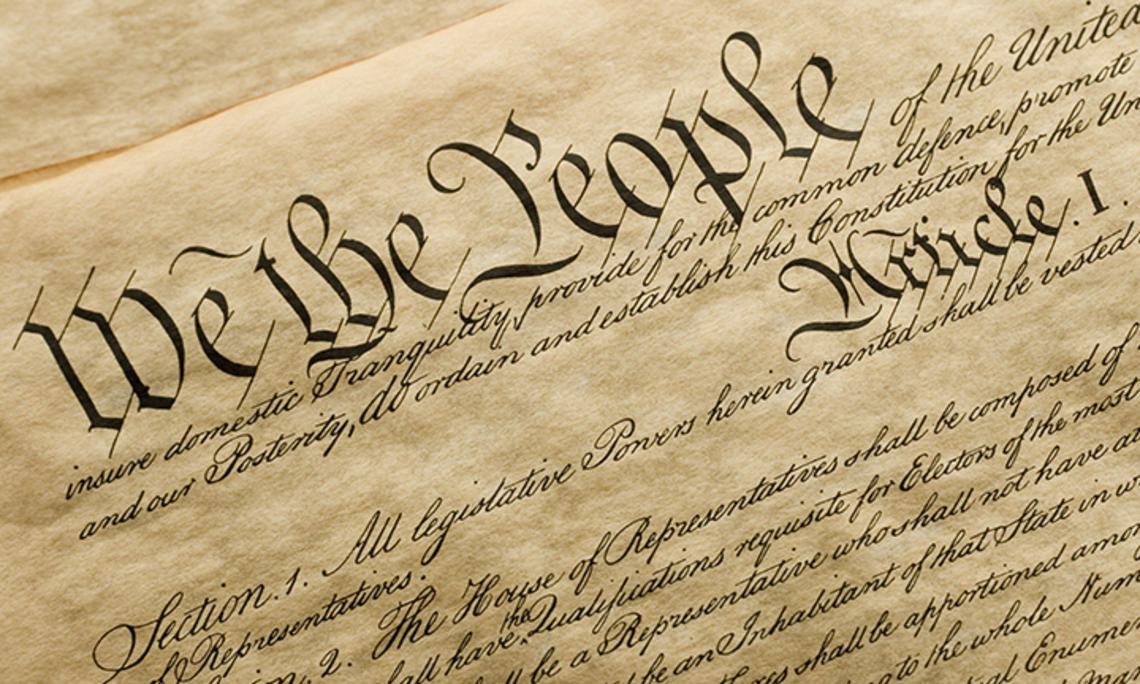 We the People of the United
insure domestic Tranquility, provide for the common defence, promote
and our Posterity, do ordain and establish this Constitution for the Un
Article. I.
Section. 1. All legislative Powers herein granted shall be vested
of Representatives.
on. 2. The House of Representatives shall be composed of
all have the Qualifications requisite for Electors of the most
ll be a Representative who shall not have at
be an Inhabitant of that State in w
shall be apportioned amon
to the whole Num
Enumer